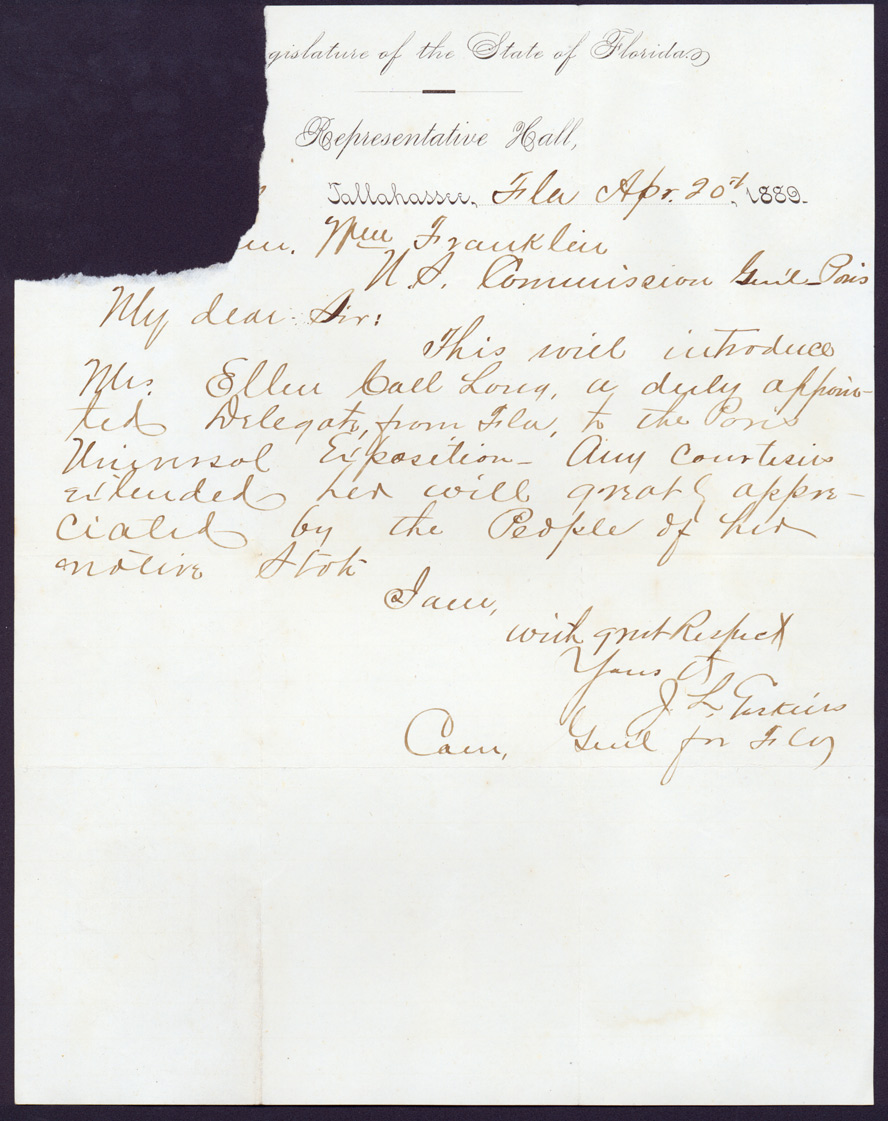 gislature of the State of Florida
Representative Hall,
Tallahassee, Fla Apr. 20th, 1889.
en. Wm Franklin
U.S. Commission Gen'l Paris
My dear Sir:
This will introduce
Mrs. Ellen Call Long, a duly appoin-
ted Delegate, from Fla, to the Paris
Universal Exposition - Any courtesies
extended her will greatly appre-
ciated by the People of her
native State
I am,
with great Respect
Yours &
J. L.
Com, Gen'l for Fla